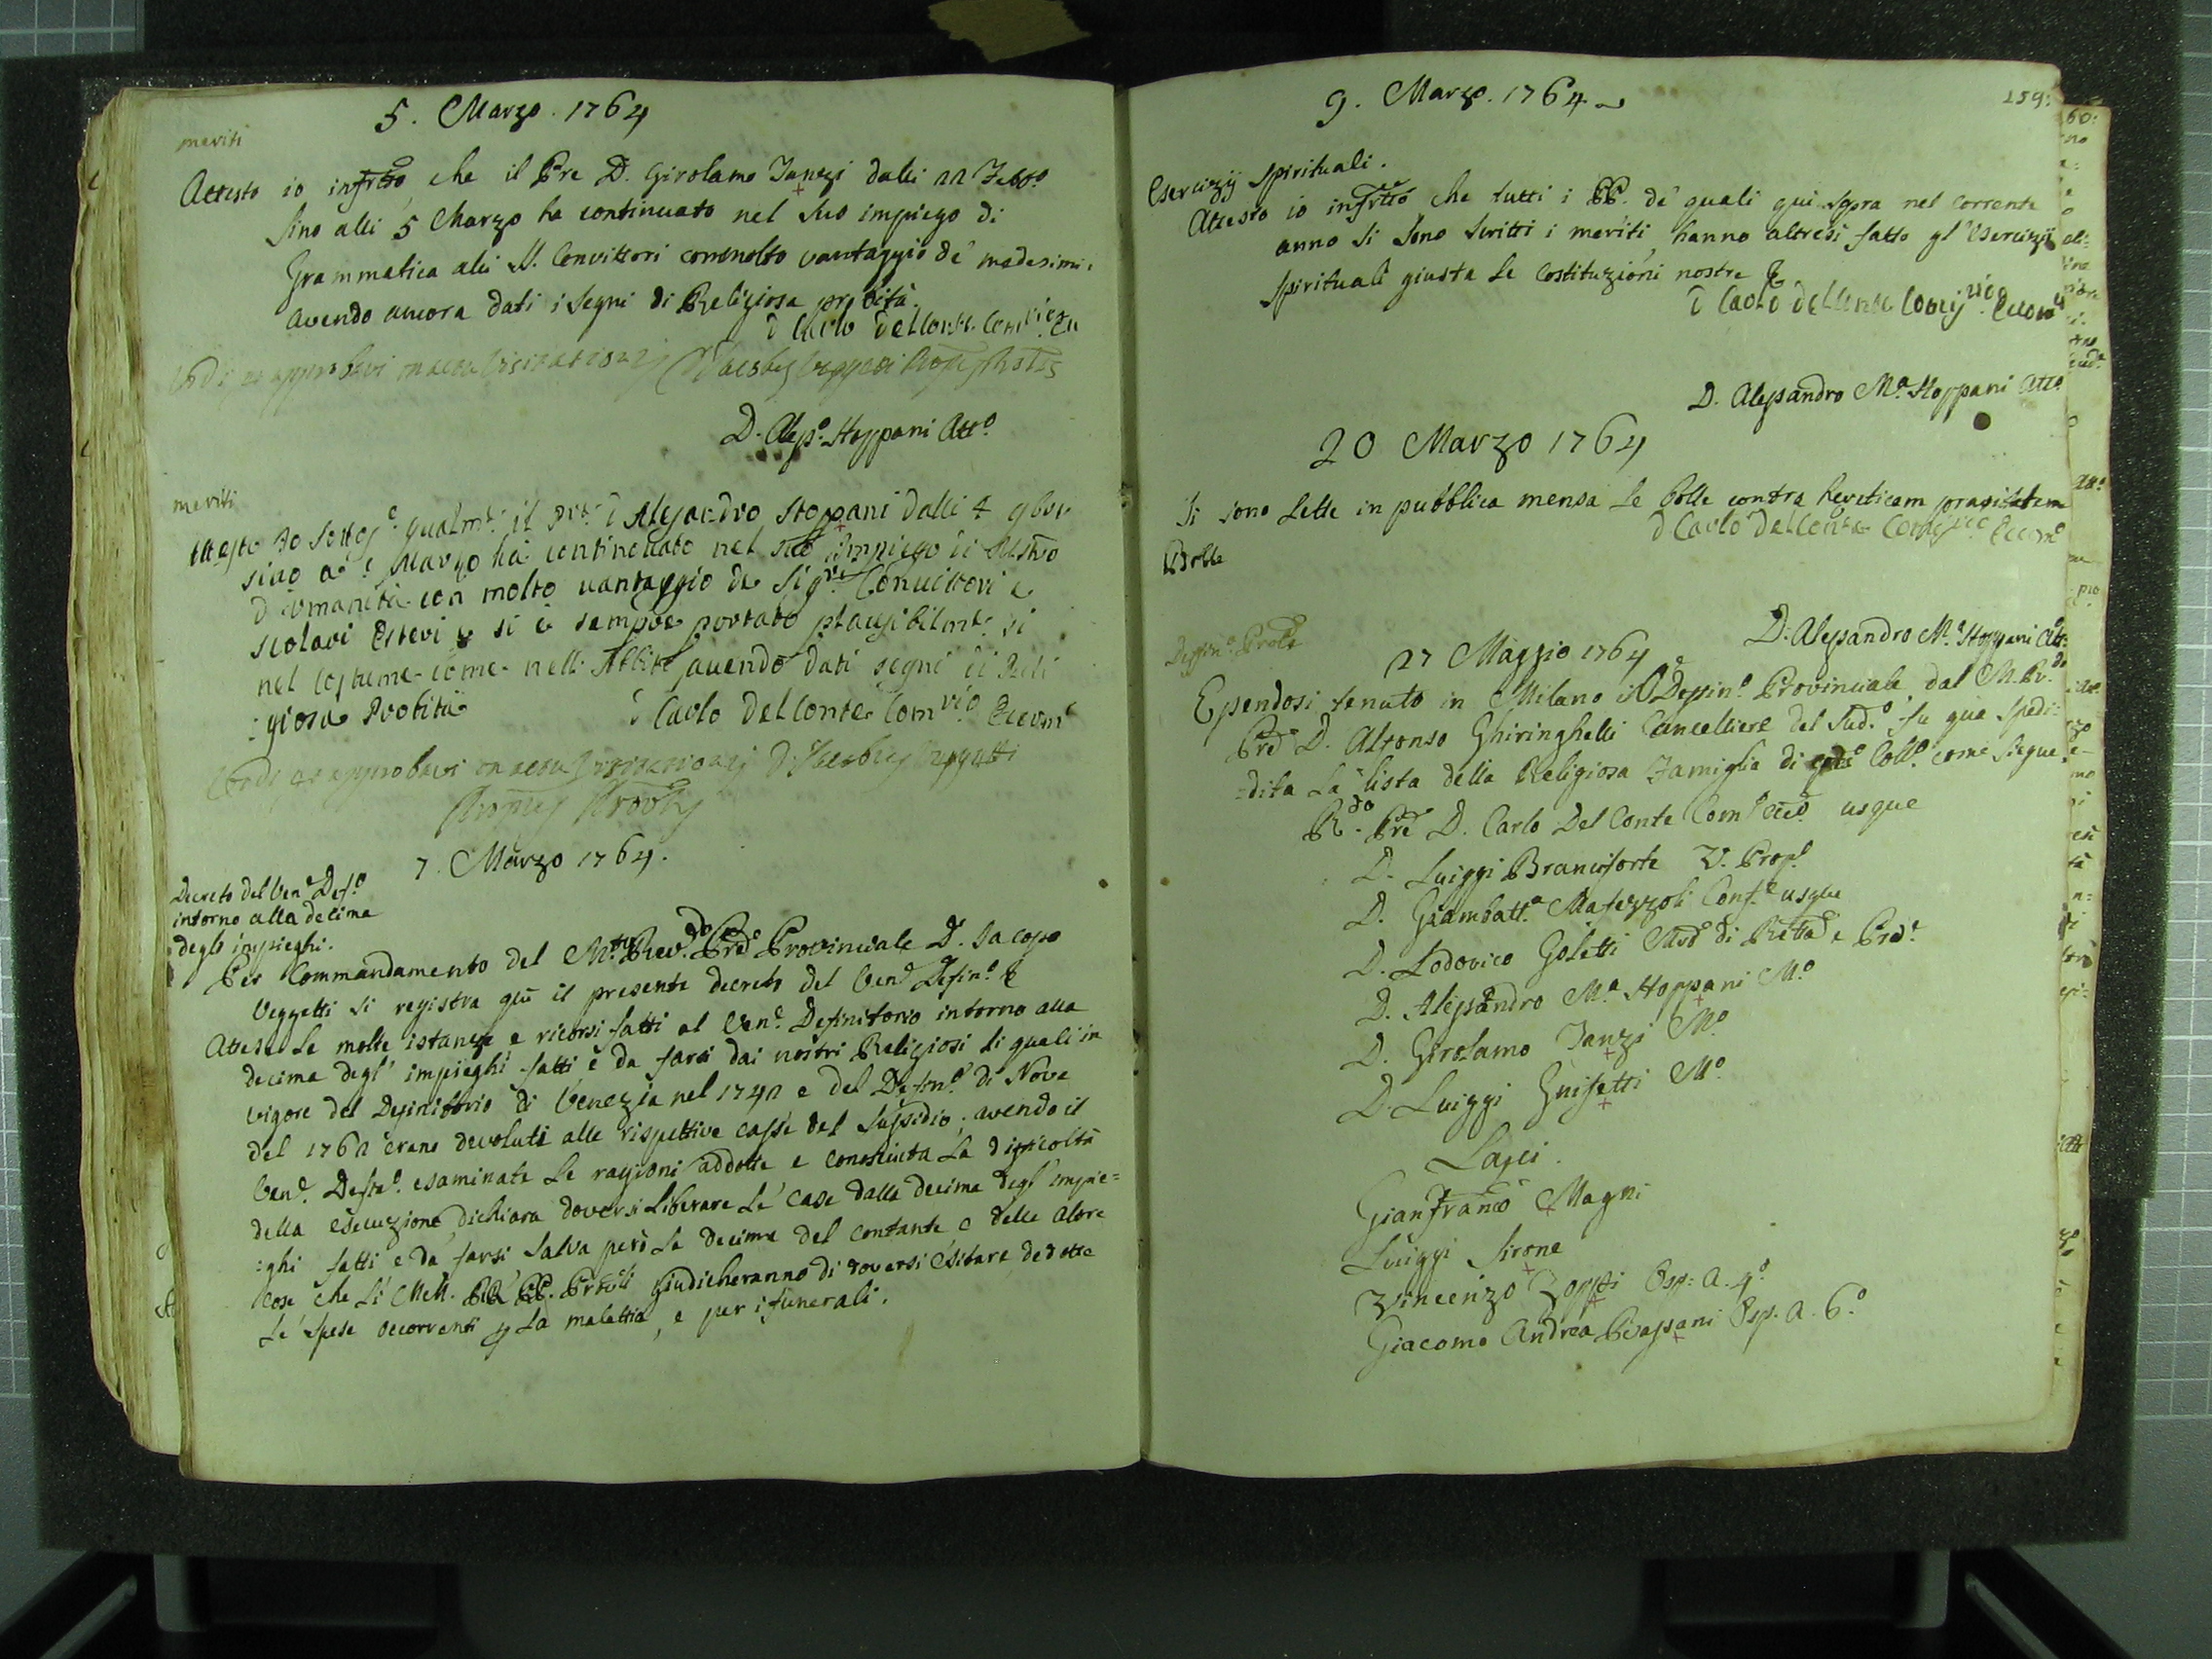 5. Marzo. 1764
meriti
Attesto io infrtto, che il Pre D. Girolamo Tanzi dalli 22 Febb.o
sino alli 5 Marzo ha continuato nel suo impiego di
Grammatica alli SS. Convittori con molto vantaggio de' medesimi,
avendo ancora dati i segni di Religiosa probità.
D Carlo Del Conte Com
Vidi et approbavi in actu Visitationis D Jacobus Veggetti
D. Aless.o Stoppani Att.o
meriti
Attesto Io sottos.o qualm.te il D Alessandro Stoppani dalli 4 9bre
sino a' Marzo ha continouato nel suo Impiego di
D'umanità con molto vantaggio de Sig.ri Convittori e
scolari Esteri e si è sempre portato plausibilmte si
nel costume come nell' Abito, avendo dati segni di Reli
:giosa Probità
D Carlo Del Conte Com.rio
Vidi et approbavi in actu Visitationis D. Jacobus Veggetti
7. Marzo 1764.
Decreto del Ven.e Def.o
intorno alla decima
degl' impieghi.
Per Commandamento del M.to Rev.do Pre Provinciale D. Jacopo
Veggetti si registra quì il presente decreto del Ven.e Defin.o
Attese le molte istanze e ricorsi fatti al Ven.e Definitorio intorno alla
decima degl' impieghi fatti e da farsi dai nostri Religiosi li quali in
vigore del Definitorio di Venezia nel 1742 e del Defin.o di Nove
del 1762 erano devoluti alle rispettive casse del Sussidio; avendo il
Ven.e Defin.o esaminate le ragioni addotte e conosciuta la difficoltà
della esecuzione, dichiara doversi liberare le case dalla decima degl' impie=
:ghi fatti e da farsi salva però la decima del contante e delle altre
cose che li MM. RR. PP. Prvli giudicheranno di doversi esitare dedotte
le spese occorrenti p la malattia, e per i funerali.
259:
9. Marzo. 1764
Esercizij Spirituali.
Attesto io infrtto che tutti i PP. de' quali qui sopra nel corrente
anno si sono scritti i meriti, hanno altresì fatto gl' Esercizij
Spirituali giusta le Costituzioni nostre
D Carlo Del Conte
D. Alessandro M.a Stoppani Att.o
20 Marzo 1764
Si sono lette in pubblica mensa le bolle contra hereticam pravitatem
D Carlo Del Conte
Bolle
D. Alessandro M.a Stoppani Att.o
27 Maggio 1764
Essendosi tenuto in Milano il Deffin.o Provinciale, dal M. R.do
Pre D. Alfonso Ghiringhelli Cancelliere del Sud.o fu qua spedi=
=dita la lista della Religiosa Famiglia di Coll.o come siegue.
R.do Pre D. Carlo Del Conte usque
D. Luiggi Branciforte V. Prop.
D. Giambatt.a Mafezzoli Conf.e usque
D. Lodovico Goletti di e
D. Alessandro M.a Stoppani M.o
D. Girolamo Tanzi M.o
D. Luiggi Grisetti M.o
Laici.
Gianfranco Magni
Luiggi Sirone
Vincenzo Zoppi Osp: a. 9.o
Giacomo Andrea Bassani Osp. a. 6.o